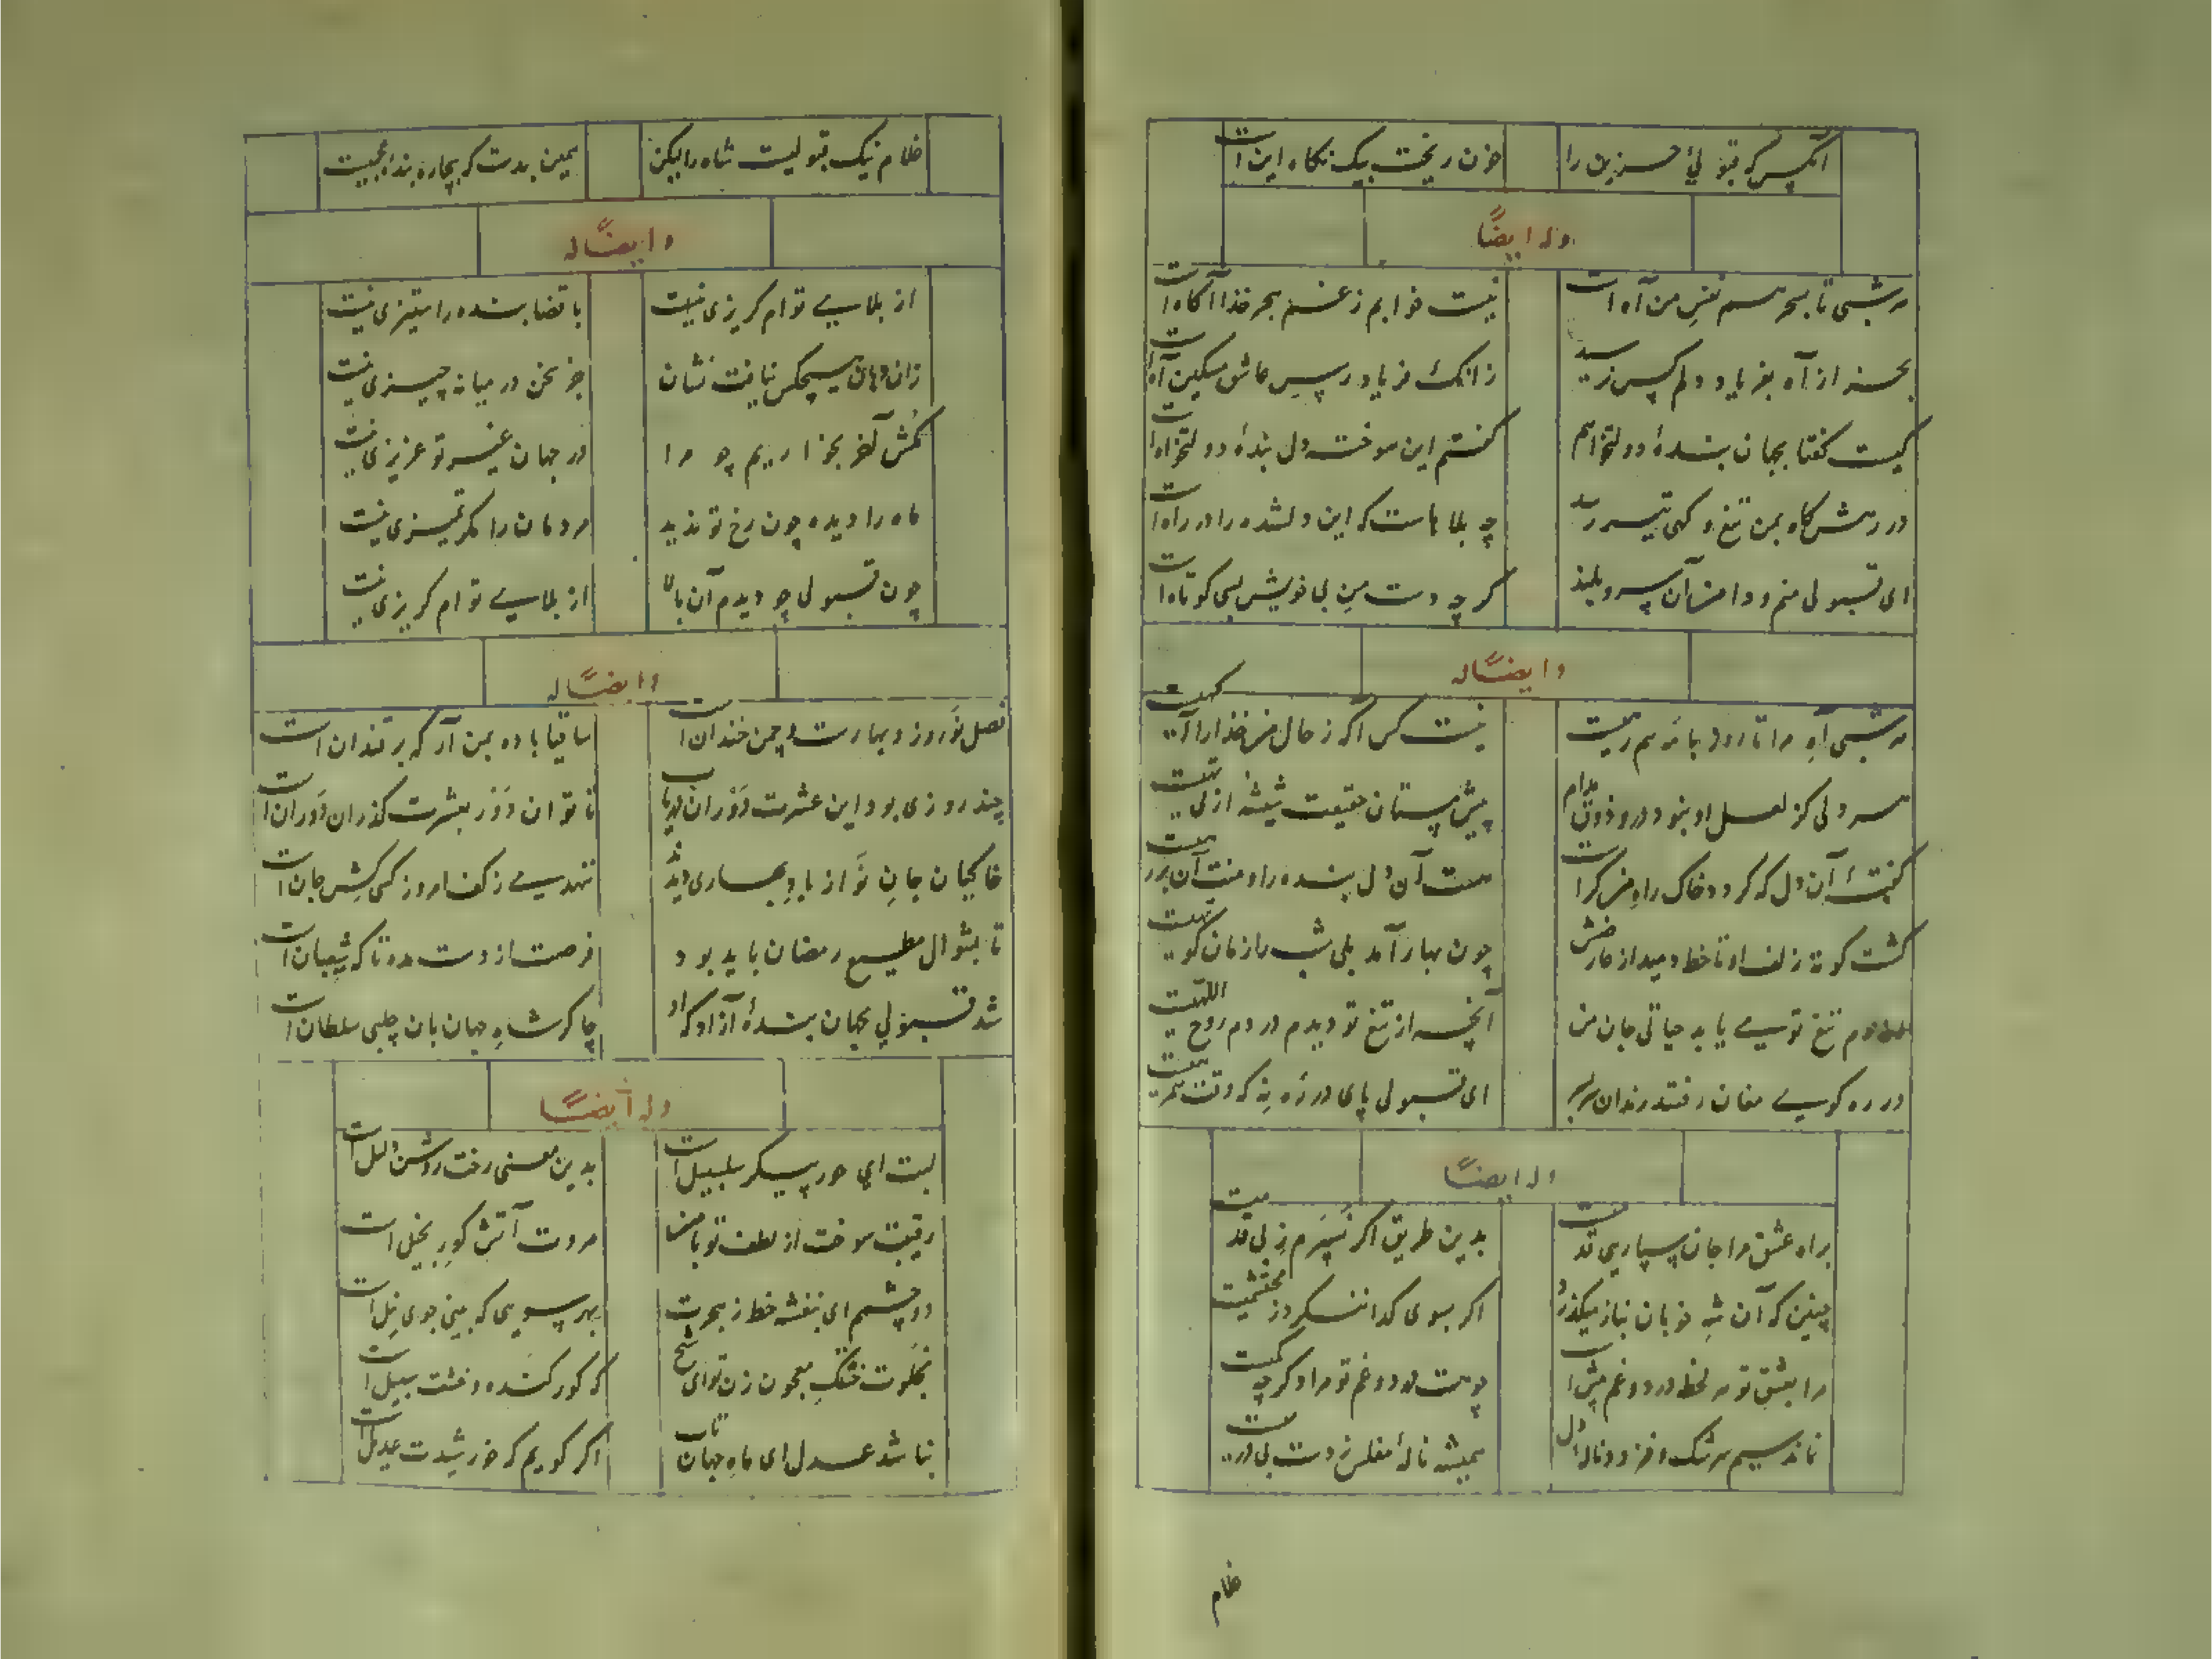 آنکس که قبولیٔ حزین را خون ریخت بیک نکاه این است
وله ایضًا
هر شبی تا بسحر همنفس من آه است نیست خوابم ز غم هجر خدا آکاه است
بجز از آه بفریاد دلم کس نرسید زانک فریادرس عاشق مسکین آه است
کیست کفتا بجهان بندهٔ دولتخواهم کفتم این سوخته دل بندهٔ دولتخواه است
در رهش کاه بمن تیغ و کهی تیر رسد چه بلاهاست که این دلشده را در راه است
ای قبولی منم و دامن آن سرو بلند کرچه دست من بی خویش بسی کوتاه است
وایضًا له
هر شبی آه مرا تا رود با مه همرهیست نیست کس اکر ز حال من خدا را آکهیست
هر دلی کز لعل او نبود درو ذوق مدام پیش مستان حقیقت شیشهٔ از می تهیست
کفت آن دل که کردد خاک راه من کراست هست آن دل بنده را و منت آن بر رهیست
کشت کوته زلف او تا خط دمید از عارضش چون بهار آمد بلی شب را زمان کوتهیست
دم تیغ تو می یابد حیاتی جان من آنچه از تیغ تو دیدم در دم روح اللهیست
در ره کوی مغان رفتند رندان سربسر ای قبولی پای در ره نه که وقت همرهیست
وله ایضًا
براه عشق مرا جان سپاری قدمیست بدین طریق اکر نسپرم ز بی قدمیست
چنین که آن شه خوبان بناز میکذرد اکر بسوی کدا ننکرد ز محتشمیست
مرا بعشق تو هر لحظه درد و غم بیش است چو هست درد و غم تو مرا دکر چه کمیست
نماند سیم سرشک و فزود نالهٔ دل همیشه نالهٔ مفلس ز دست بی درمیست
غلام
غلام نیک قبولیست شاه را لیکن همین بدست که بیچاره بنده عجمیست
وایضًا له
از بلای توام کریزی نیست با قضا بنده را ستیزی نیست
زان دهان هیچکس نیافت نشان جز سخن در میانه چیزی نیست
کُمش آخر بخواریم چو مرا در جهان غیر تو عزیزی نیست
ماه را دیده چون رخ تو ندید مردمان را مکر تمیزی نیست
چون قبولی چو دیدم آن بالا از بلای توام کریزی نیست
وایضًا له
فصل نوروز و بهارست و چمن خندان است ساقیا باده بمن آر که بر تند ان است
چند روزی بود این عشرت دوران دریاب تا توان دور بعشرت کذران دوران است
خاکیان جان نو از باد بهاری دیدند ننهد می ز کف امروز کسی کش جان است
تا بشوال مطیع رمضان باید بود فرصت از دست مده تا که شعبان است
شد قبولی بجهان بندهٔ آزاد که او چاکر شاه جهان بان چلبی سلطان است
وله ایضًا
لبت ای حور پیکر سلسبیل است بدین معنی رخت روشن دلیل است
رقیبت سوخت از لطف تو با من مروت آتش کور بخیل است
دو چشمم ای بنفشه خط ز هجرت بهر سویی که بینی جوی نیل است
بخلوت خشک همچون زن توای شیخ که کور کنده و خشت سبیل است
نباشد عدل ای ماه جهان تاب اکر کویم که خورشیدت عدیل است